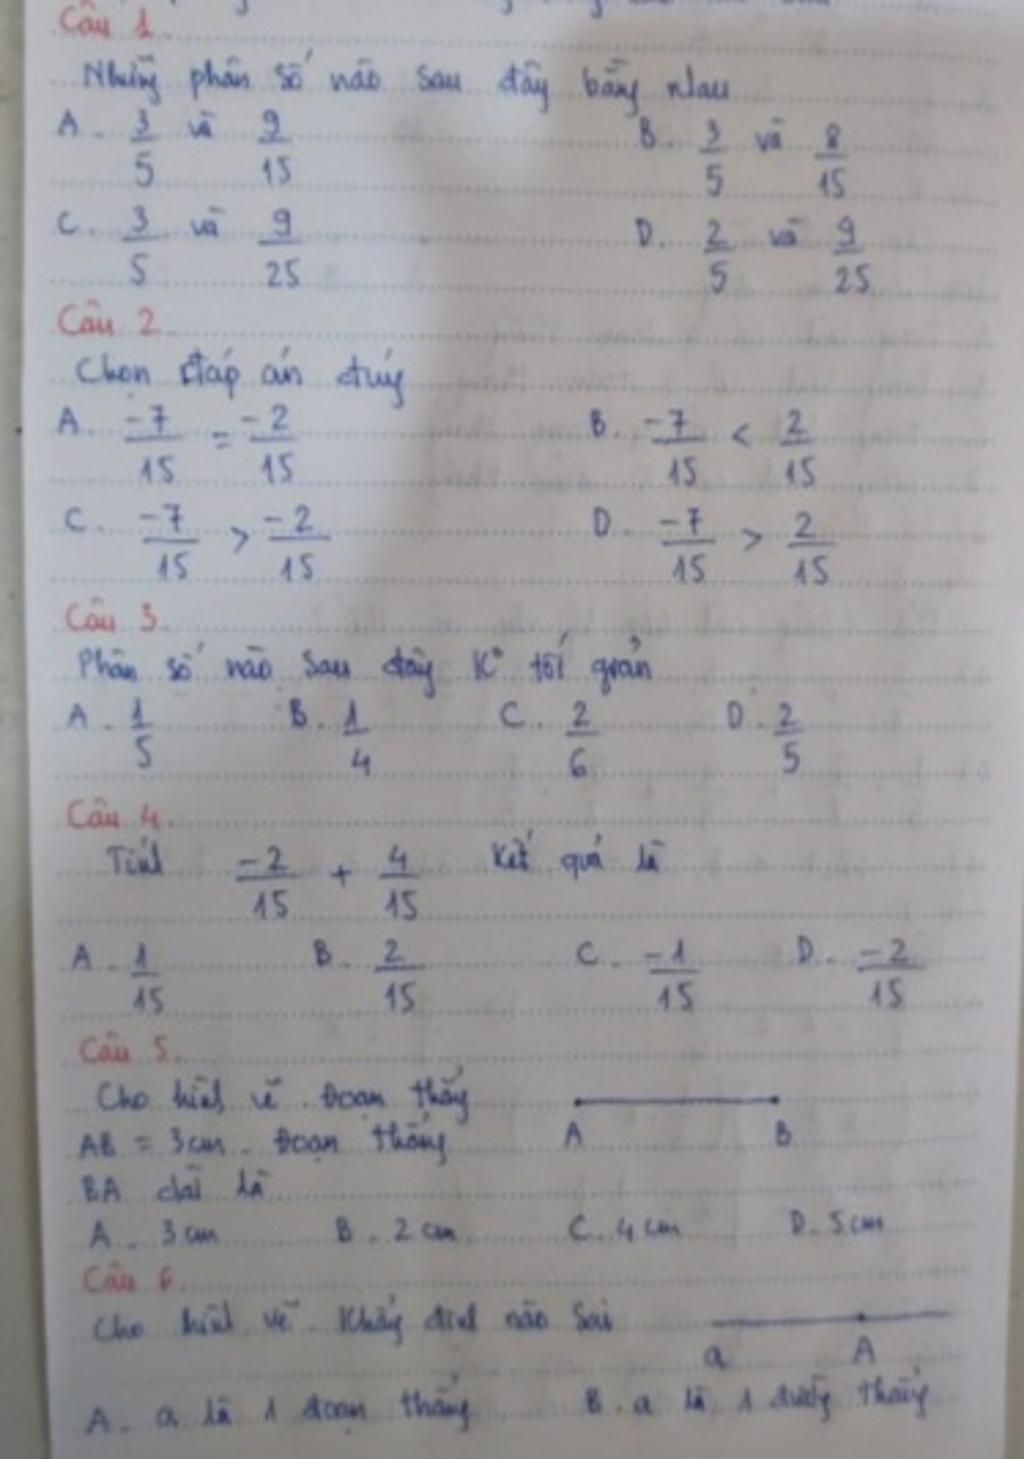 Câu 1.
Những phân số nào sau đây bằng nhau
A. 3/5 và 9/15 B. 3/5 và 8/15
C. 3/5 và 9/25 D. 2/5 và 9/25
Câu 2
Chọn đáp án đúng
A. -7/15 = -2/15 B. -7/15 < 2/15
C. -7/15 > -2/15 D. -7/15 > 2/15
Câu 3
Phân số nào sau đây K° tối giản
A. 1/5 B. 1/4 C. 2/6 D. 2/5
Câu 4.
Tính -2/15 + 4/15 Kết quả là
A. 1/15 B. 2/15 C. -1/15 D. -2/15
Câu 5.
Cho hình vẽ. Đoạn thẳng
AB = 3cm. Đoạn thẳng A B
BA dài là
A. 3cm B. 2cm C. 4cm D. 5cm
Câu 6.
Cho hình vẽ. Khẳng định nào sai
a A
A. a là 1 đoạn thẳng B. a là 1 đường thẳng